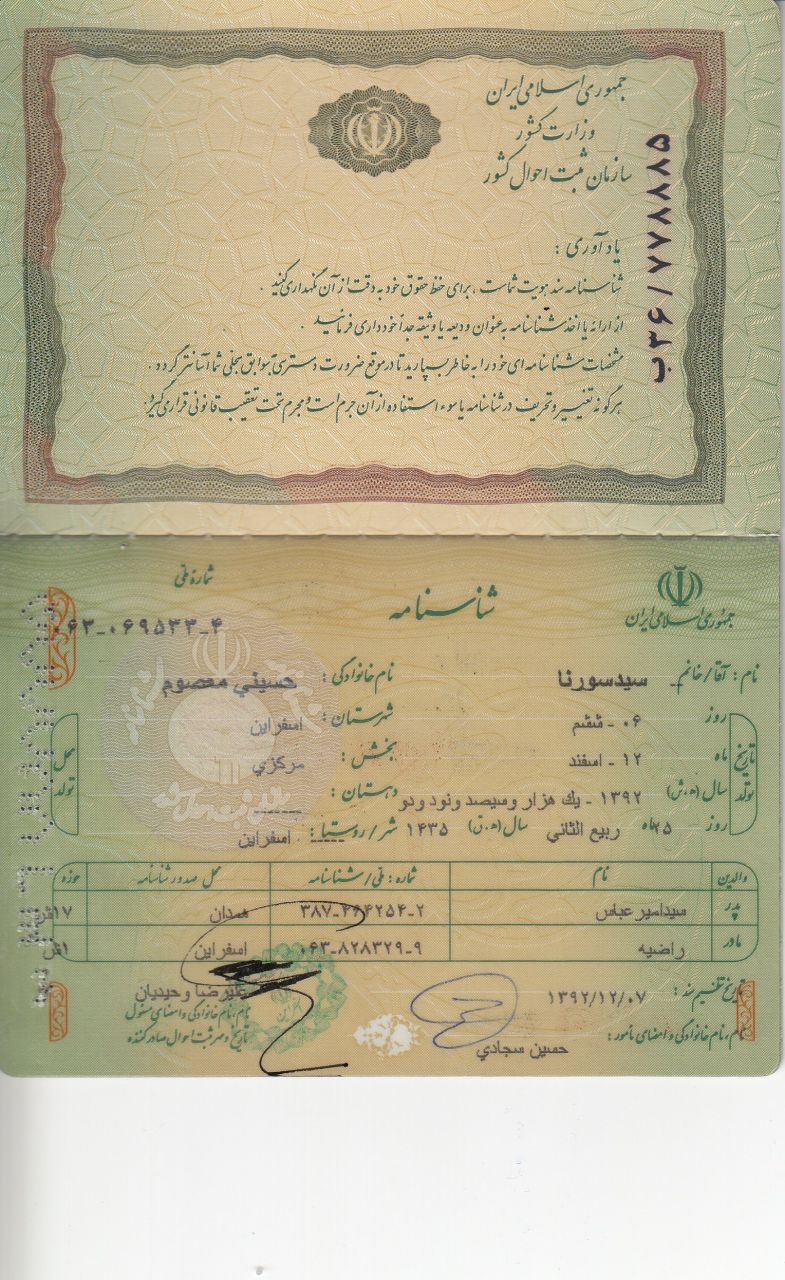 جمهوری اسلامی ایران
وزارت کشور
سازمان ثبت احوال کشور
ب۳۶/۷۷۸۸۸۵
یادآوری :
شناسنامه سند هویت شماست ، برای حفظ حقوق خود به دقت از آن نگهداری کنید .
از ارائه یا اخذ شناسنامه به عنوان ودیعه یا وثیقه جداً خودداری فرمائید .
مشخصات شناسنامه ای خود را به خاطر بسپارید تا در موقع ضرورت دسترسی به سوابق سجلی شما آسانتر گردد .
هرگونه تغییر و تحریف در شناسنامه یا سوء استفاده از آن جرم است و مجرم تحت تعقیب قانونی قرار می گیرد.
جمهوری اسلامی ایران
شناسنامه
شماره ملی
۰۶۳-۰۶۹۵۳۳-۴
نام : آقا/خانم سیدسورنا نام خانوادگی : حسیني معصوم
تاریخ تولد روز ۰۶ - ششم شهرستان : اسفراین محل تولد
ماه ۱۲ - اسفند بخش : مرکزي
سال (ه.ش) ۱۳۹۲ - یك هزار وسیصد ونود ودو دهستان : ------
روز ۲۵ ماه ربیع الثاني سال (ه.ق) ۱۴۳۵ شهر/روستا : ----- اسفراین
والدین نام شماره : ملی/شناسنامه محل صدور شناسنامه حوزه
پدر سیدامیرعباس ۳۸۷-۴۴۴۲۵۴-۲ همدان ۱۷
مادر راضیه ۰۶۳-۸۲۸۳۲۹-۹ اسفراین
تاریخ تنظیم سند : ۱۳۹۲/۱۲/۰۷ علیرضا وحیدیان
نام ، نام خانوادگی و امضای مأمور : حسین سجادي
نام ، نام خانوادگی و امضای مسئول
تاریخ و مهر ثبت احوال صادر کننده